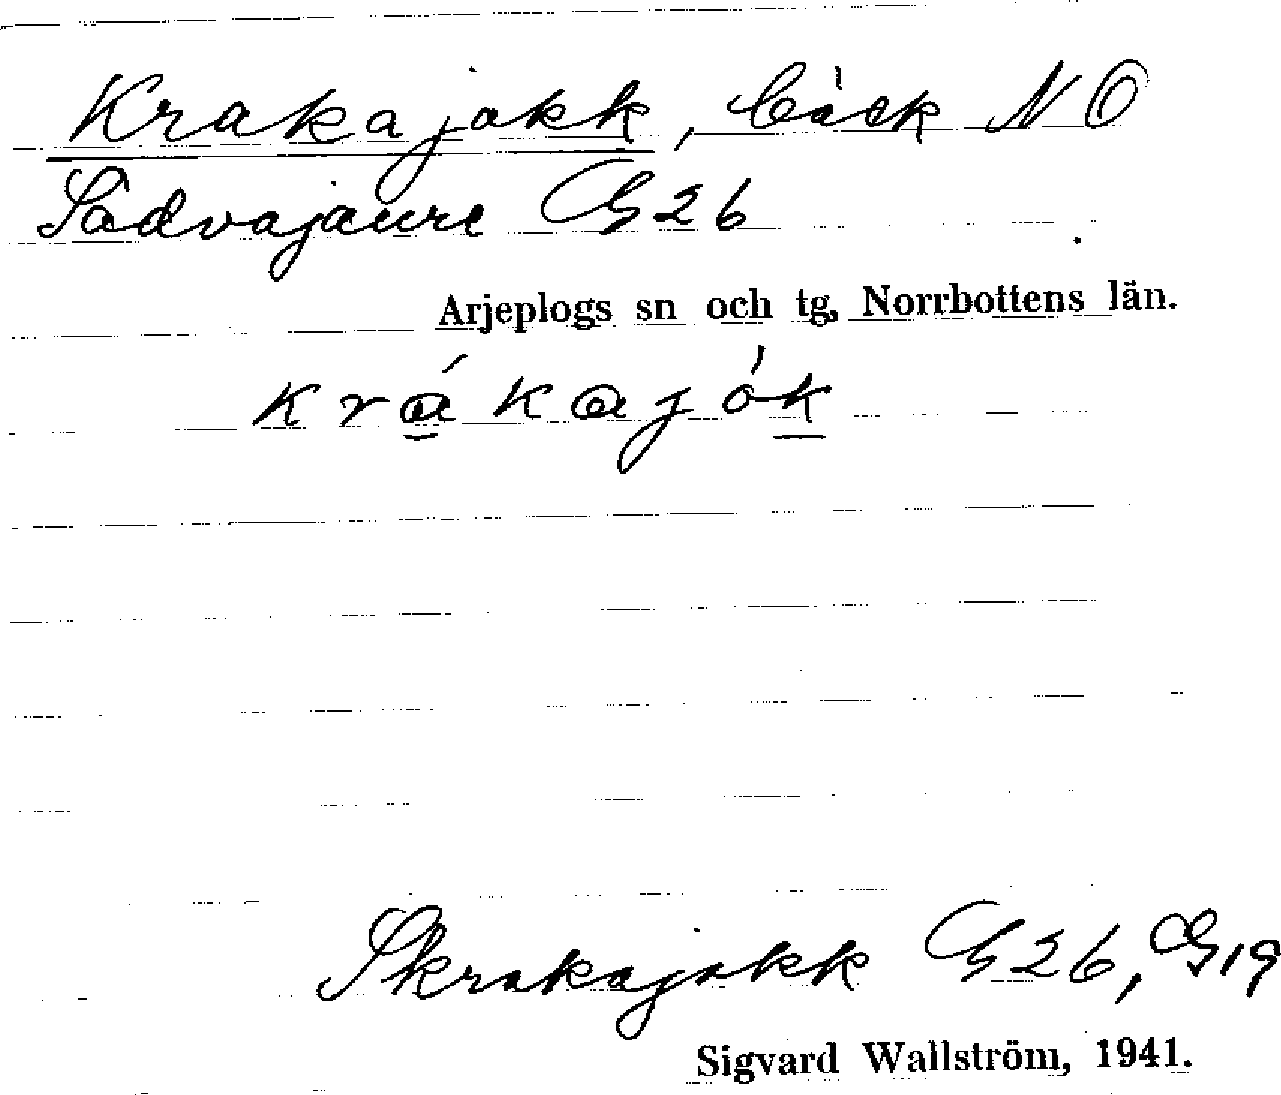 Krakajokk, bäck NO
Sädvajaure G26
Arjeplogs sn och tg, Norrbottens län.
krákajók
Skrakajokk G26, G19
Sigvard Wallström, 1941.